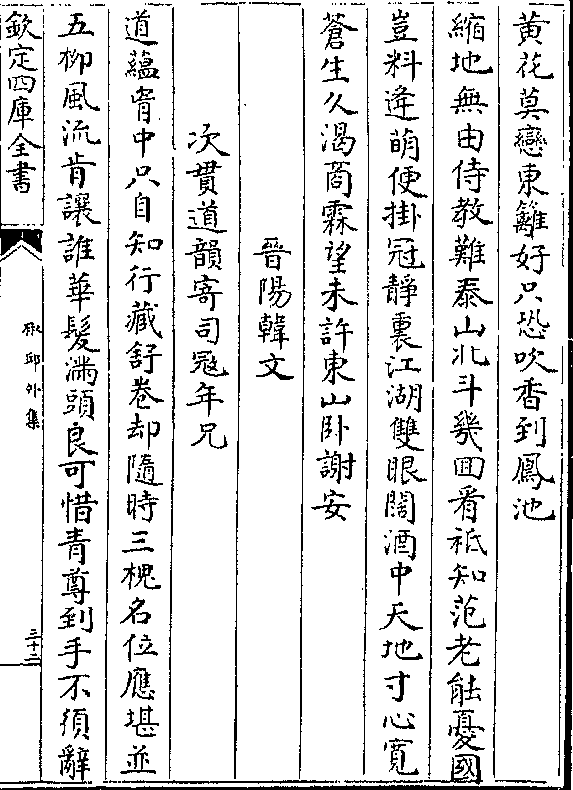 黄花莫戀東籬好只恐吹香到鳳池
縮地無由侍教難泰山北斗幾回看祗知范老能憂國
豈料逄萌便掛冠靜裏江湖雙眼闊酒中天地寸心寛
蒼生久渴啇霖望未許東山卧謝安
晉陽韓文
次貫道韻寄司冦年兄
道藴胷中只自知行藏舒卷却隨時三槐名位應堪並
五栁風流肯讓誰華髮滿頭良可惜青尊到手不須辭
欽定四庫全書
邱外集
三十二